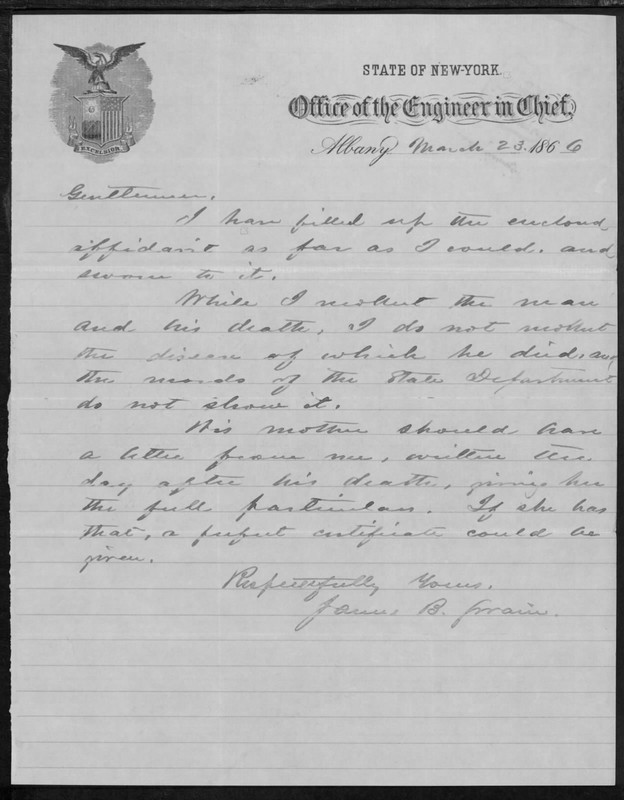 EXCELSIOR
STATE OF NEW-YORK.
Office of the Engineer in Chief,
Albany March 23. 1866
Gentlemen.
I have filled up the enclosed
affidavit as far as I could. and
sworn to it.
While I recollect the man
and his death, I do not recollect
the disease of which he died. and
the records of the State Department
do not show it.
His mother should have
a letter from me, written the
day after his death, giving her
the full particulars. If she has
that, a perfect certificate could be
given.
Respectfully Yours.
James B. Swain.